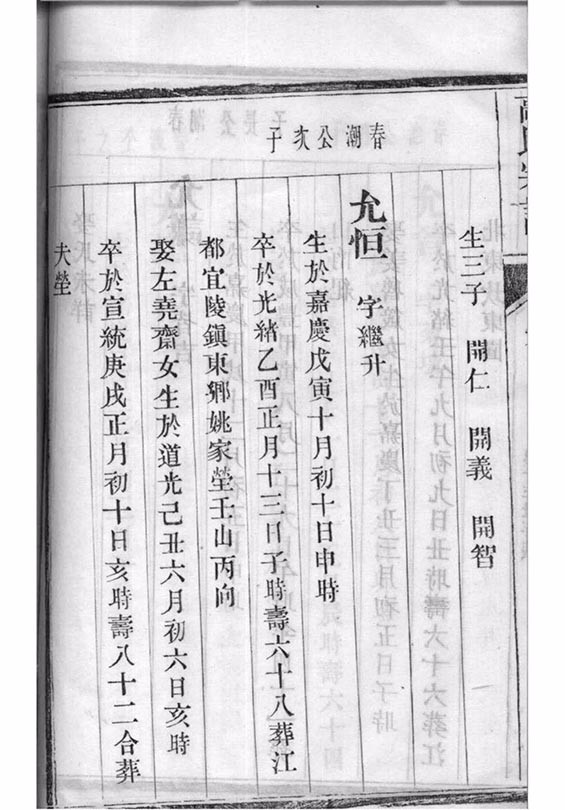 生三子 開仁 開義 開智
春潮公次子
允恒 字繼升
生於嘉慶戊寅十月初十日申時
卒於光緒乙酉正月十三日子時壽六十八葬江
都宜陵鎮東鄉姚家塋壬山丙向
娶左堯齋女生於道光己丑六月初六日亥時
卒於宣統庚戌正月初十日亥時壽八十二合葬
夫塋